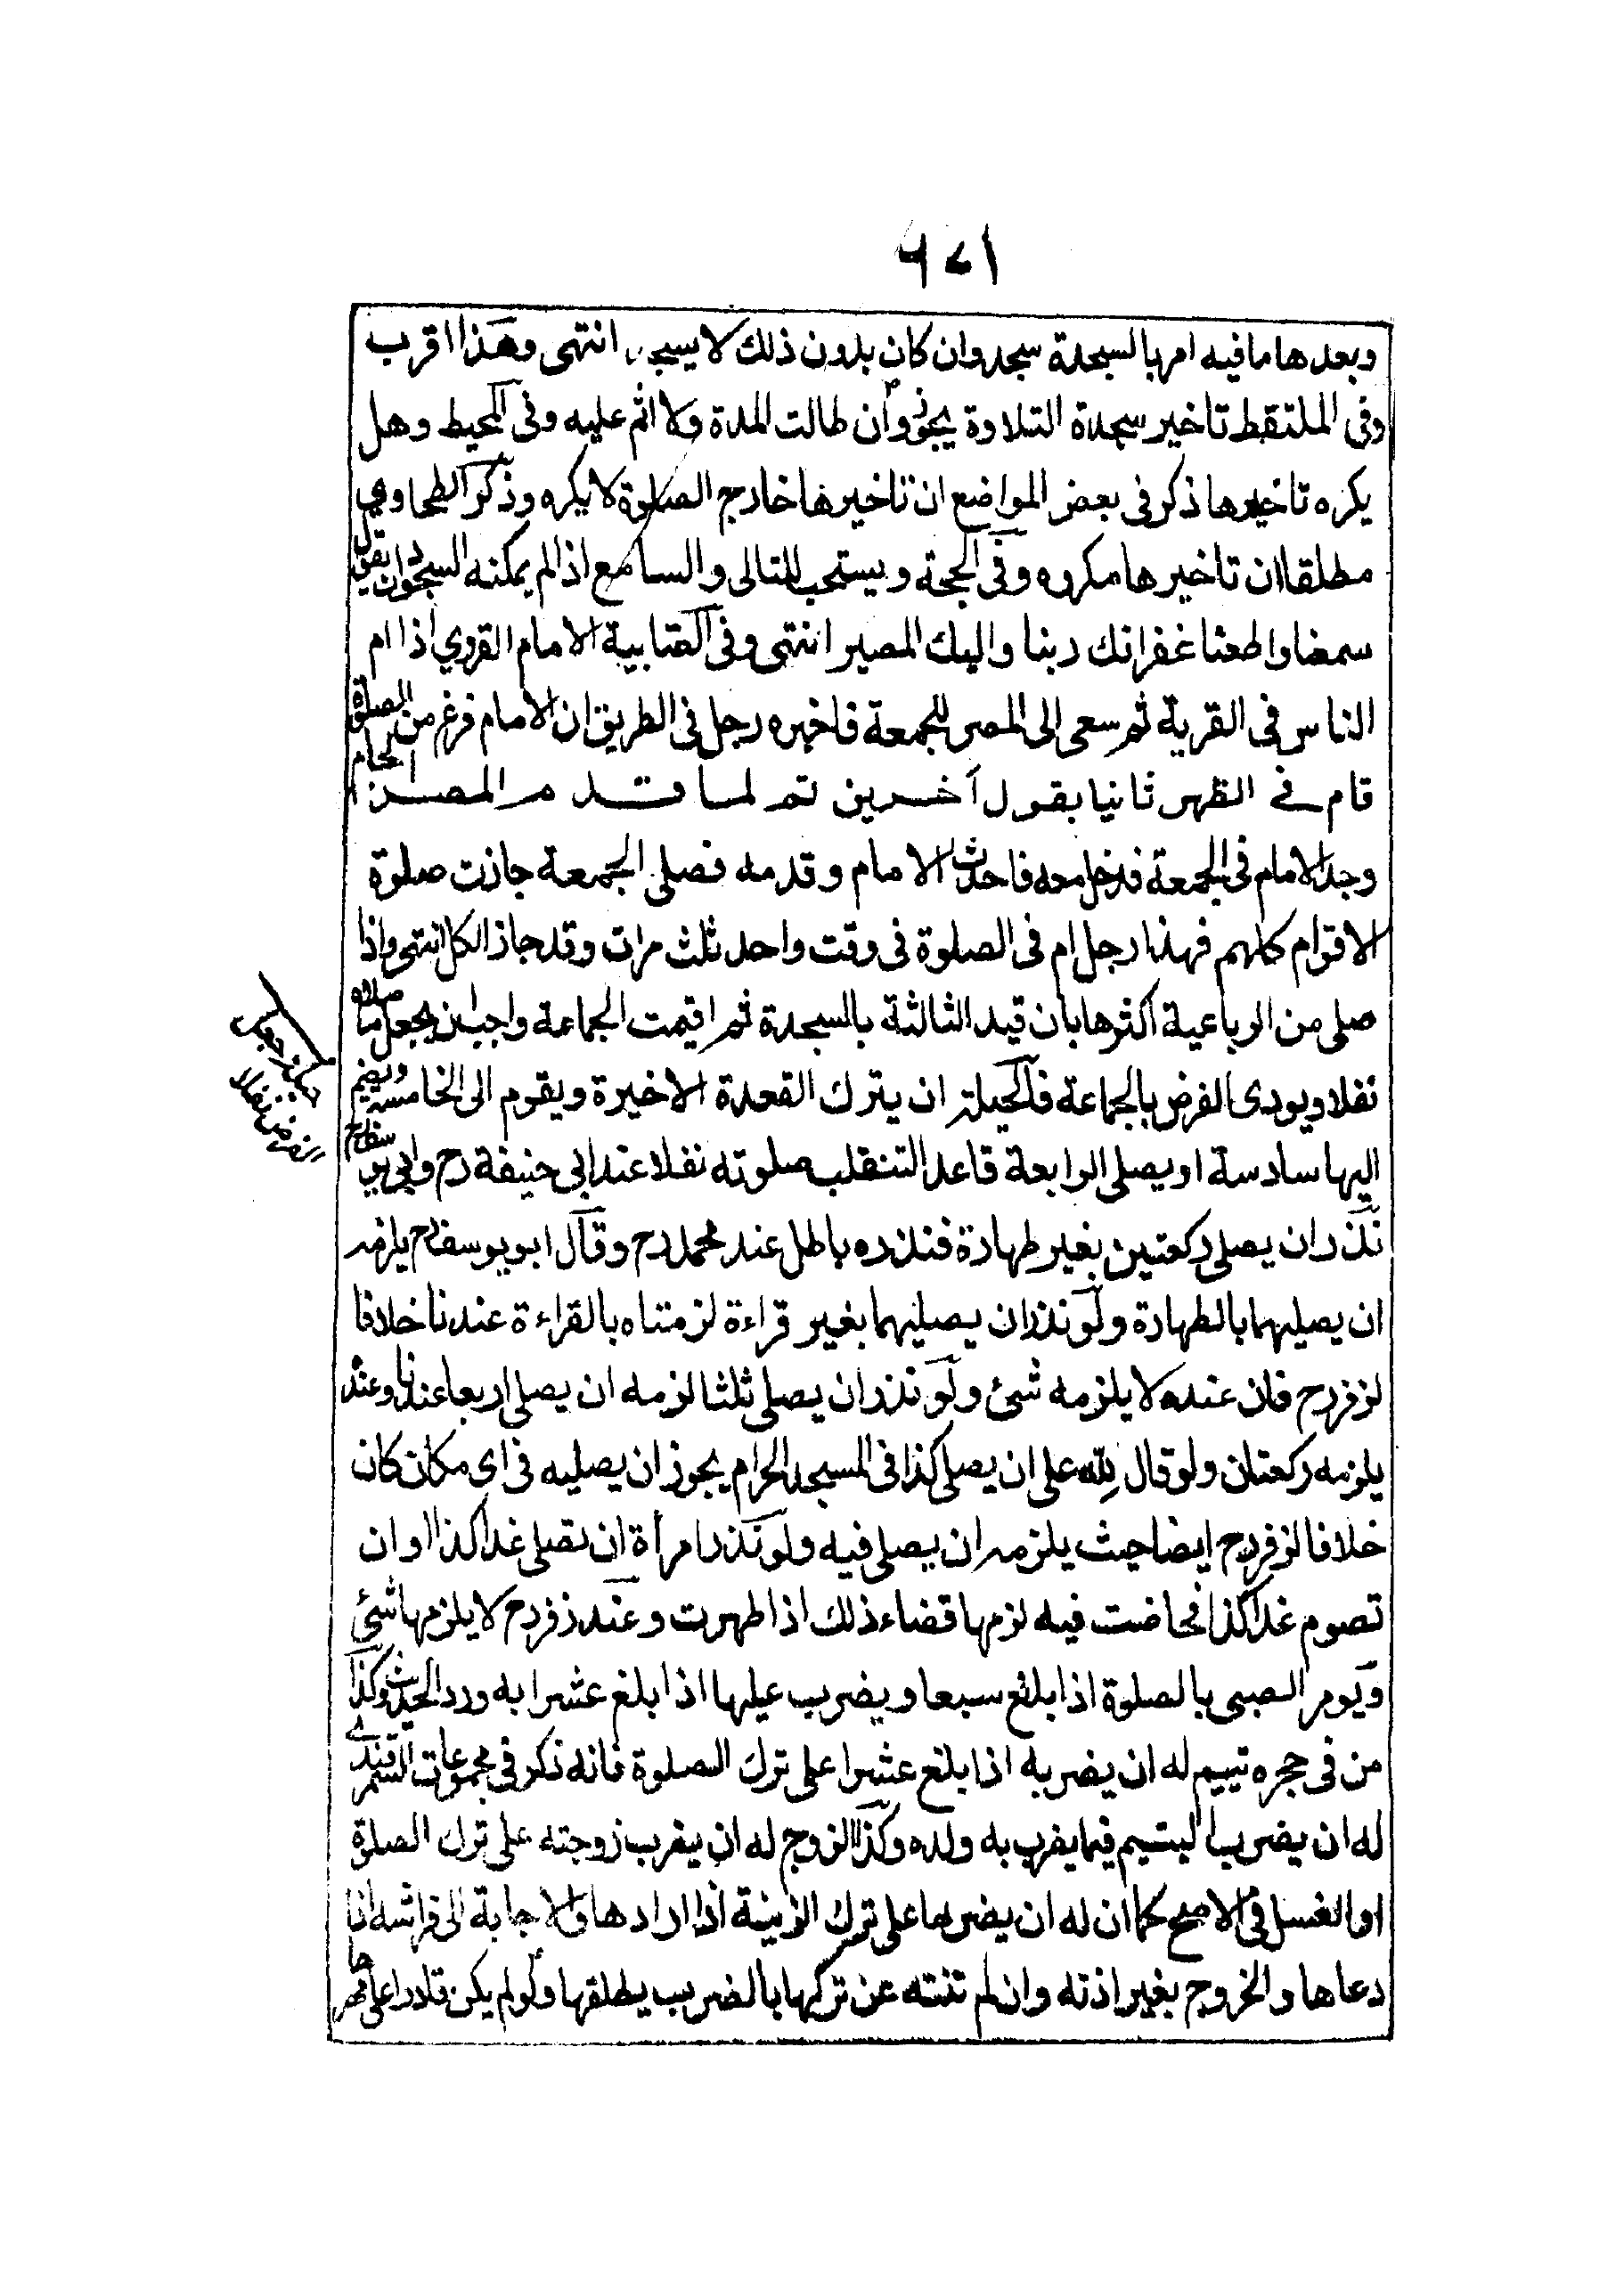 ١٧٦
وبعدها ما فيه امر بالسجدة سجد وان كان بدون ذلك لا يسجد انتهى وهذا اقرب
وفى الملتقط تاخير سجدة التلاوة يجوز وان طالت المدة ولا اثم عليه وفى المحيط وهل
يكره تاخيرها ذكر فى بعض المواضع ان تاخيرها خارج الصلوة لا يكره وذكر الطحاوي
مطلقا ان تاخيرها مكروه وفى الحجة ويستحب للتالى والسامع اذا لم يمكنه السجود ان يقول
سمعنا واطعنا غفرانك ربنا واليك المصير انتهى وفى العتابية الامام القروي اذا ام
الناس فى القرية ثم سعى الى المصر للجمعة فاخبره رجل فى الطريق ان الامام فرغ من الصلوة
قام فى الظهر ثانيا بقول آخرين ثم لما قدم المصر
وجد الامام فى الجمعة فدخل معه فاحدث الامام وقدمه فصلى الجمعة جازت صلوة
الاقوام كلهم فهذا رجل ام فى الصلوة فى وقت واحد ثلث مرات وقد جاز الكل انتهى واذا
صلى من الرباعية اكثرها بان قيد الثالثة بالسجدة ثم اقيمت الجماعة واحب ان يجعل ما صلاه
نفلا ويودى الفرض بالجماعة فالحيلة ان يترك القعدة الاخيرة ويقوم الى الخامسة ويضم
اليها سادسة او يصلى الرابعة قاعدا لتنقلب صلوته نفلا عند ابى حنيفة رح وابى يوسف رح
نذر ان يصلى ركعتين بغير طهارة فنذره باطل عند محمد رح وقال ابو يوسف رح يلزمه
ان يصليهما بالطهارة ولو نذر ان يصليهما بغير قراءة لزمتاه بالقراءة عندنا خلافا
لزفر رح فان عنده لا يلزمه شئ ولو نذر ان يصلى ثلثا لزمه ان يصلى اربعا عندنا وعنده
يلزمه ركعتان ولو قال لله على ان يصلى كذا فى المسجد الحرام يجوز ان يصليه فى اى مكان كان
خلافا لزفر رح ايضا حيث يلزمه ان يصلى فيه ولو نذر امرأة ان تصلى غدا كذا او ان
تصوم غدا كذا فحاضت فيه لزمها قضاء ذلك اذا طهرت وعند زفر رح لا يلزمها شئ
ويومر الصبى بالصلوة اذا بلغ سبعا ويضرب عليها اذا بلغ عشرا به ورد الحديث وكذا
من فى حجره يتيم له ان يضربه اذا بلغ عشرا على ترك الصلوة فانه ذكر فى مجموعات السمرقندى
له ان يضرب اليتيم فيما يضرب به ولده وكذا الزوج له ان يضرب زوجته على ترك الصلوة
او الغسل فى الاصح كما ان له ان يضربها على ترك الزينة اذا ارادها والاجابة الى فراشه اذا
دعاها والخروج بغير اذنه وان لم تنته عن تركها بالضرب يطلقها ولو لم يكن قادرا على مهرها